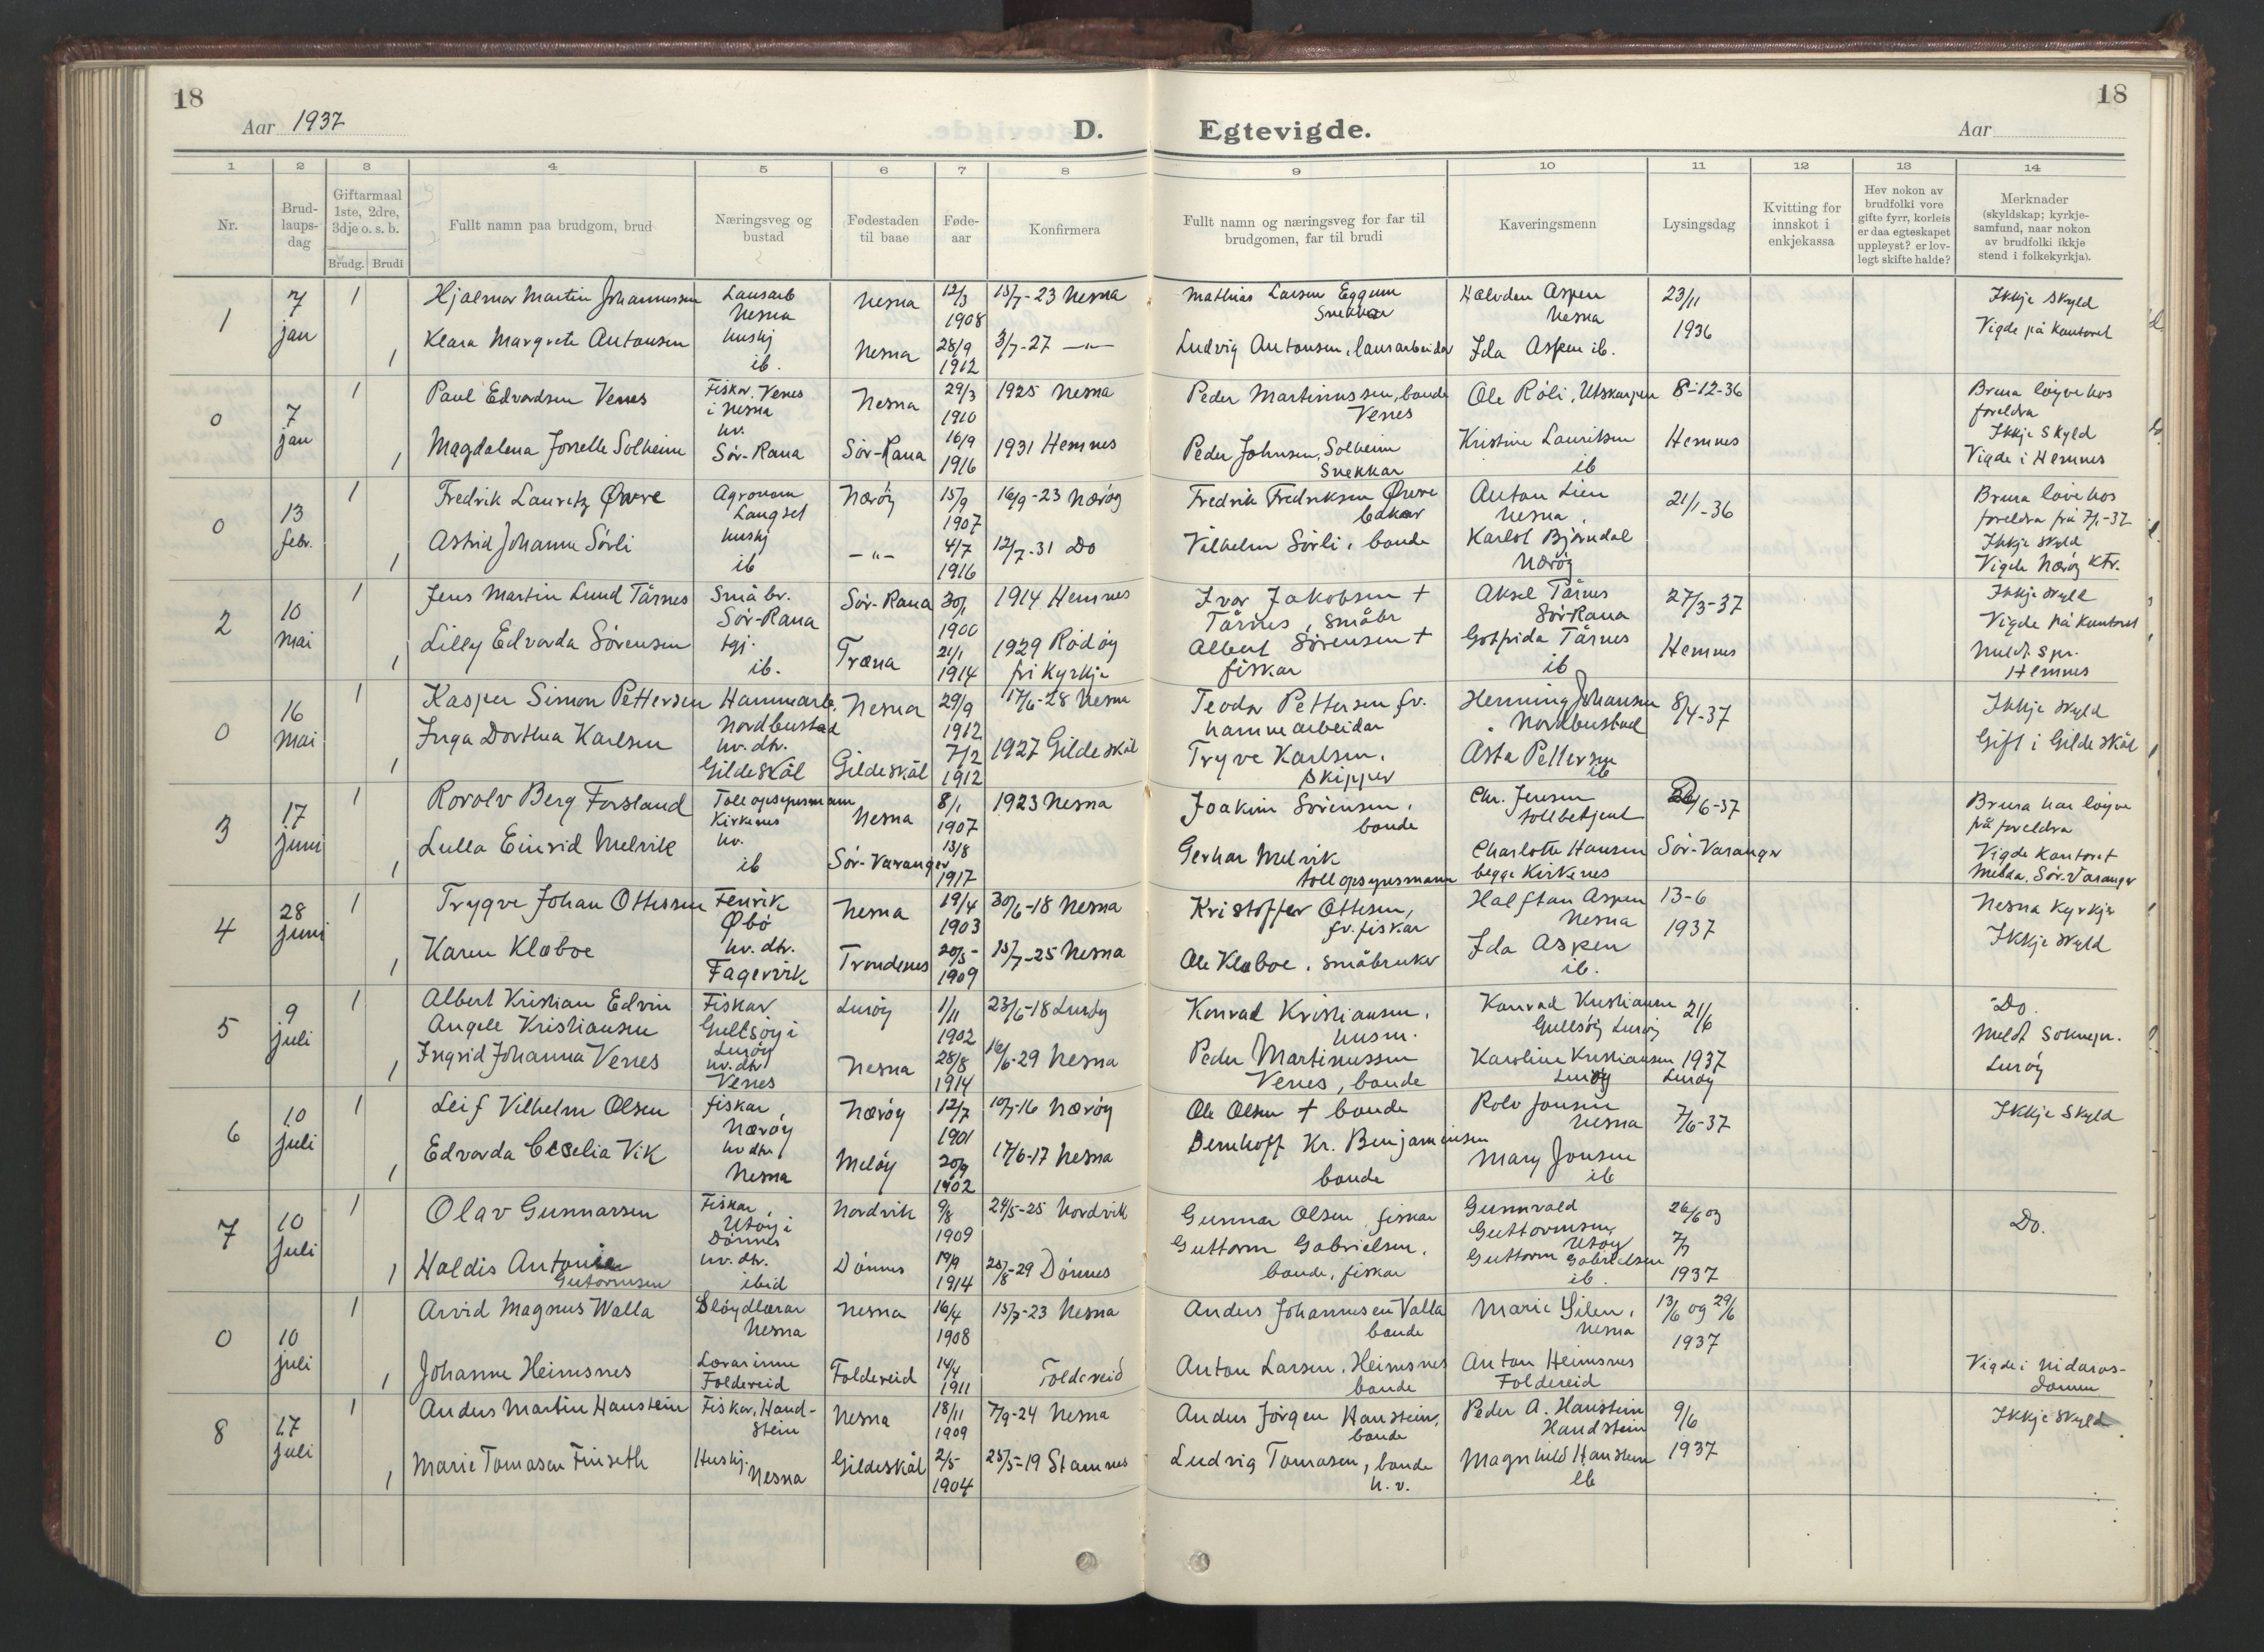 18
18
Aar 1937
D.
Egtevigde.
Aar
1 2 3 4 5 6 7 8 9 10 11 12 13 14
Nr.
Brud-
laups-
dag
Giftarmaal
1ste, 2dre,
3dje o. s. b.
Brudg. Brudi
Fullt namn paa brudgom, brud
Næringsveg og
bustad
Fødestaden
til baae
Føde-
aar
Konfirmera
Fullt namn og næringsveg for far til
brudgomen, far til brudi
Kaveringsmenn
Lysingsdag
Kvitting for
innskot i
enkjekassa
Hev nokon av
brudfolki vore
gifte fyrr, korleis
er daa egteskapet
uppløyst? er lov-
legt skifte halde?
Merknader
(skyldskap; kyrkje-
samfund, naar nokon
av brudfolki ikkje
stend i folkekyrkja).
1
7
jan
1
Hjalmar Martin Johannessen
Lausarb
Nesna
Nesna
12/3
1908
15/7-23 Nesna
Mathias Larsen Eggum
Snekkar
Halvdan Aspen
Nesna
23/11
1936
Ikkje skyld
Vigde på kontoret
1
Klara Margrete Antonsen
hushj
ib.
Nesna
28/9
1912
3/7-27 —"—
Ludvig Antonsen, lausarbeidar
Ida Aspen ib.
0
7
jan
1
Paul Edvardsen Venes
Fiskar, Venes
i Nesna
Nesna
29/3
1910
1925 Nesna
Peder Martinussen, bonde
Venes
Ole Róli, Utskarpen
8-12-36
Brura løyve hos
foreldra
Ikkje skyld
Vigde i Hemnes
1
Magdalena Jorselle Solheim
hv.
Sør-Rana
Sør-Rana
16/9
1916
1931 Hemnes
Peder Johnsen, Solheim
Snekkar
Kristine Lauritsen
ib
Hemnes
0
13
febr.
1
Fredrik Lauritz Øvre
Agronom
Langset
Nærøy
15/9
1907
16/9-23 Nærøy
Fredrik Fredriksen Øvre
bakar
Anton Lien
Nesna
21/1-36
Brura løive hos
foreldra frå 7/1-37
Ikkje skyld
Vigde Nærøy ktr.
1
Astrid Johanne Sørli
hushj
ib
—"—
4/7
1916
12/7-31 Do
Vilhelm Sørli, bonde
Karlot Bjørndal
Nærøy
2
10
mai
1
Jens Martin Lund Tårnes
Småbr.
Sør-Rana
Sør-Rana
30/1
1900
1914 Hemnes
Ivar Jakobsen +
Tårnes, småbr
Aksel Tårnes
Sør-Rana
27/3-37
Ikkje skyld
Vigde på kontoret
Meldt s.pr.
Hemnes
1
Lilly Edvarda Sørensen
tgj.
ib.
Træna
21/1
1914
1929 Rødøy
frikyrkje
Albert Sørensen +
fiskar
Gotfrida Tårnes
ib
Hemnes
0
16
mai
1
Kasper Simon Pettersen
Hamnearb.
Nordbustad
Nesna
29/9
1912
17/6-28 Nesna
Teodor Pettersen fv.
hamnearbeidar
Henning Johansen
Nordbustad
8/4-37
Ikkje skyld
Gift i Gildeskål
1
Inga Dorthea Karlsen
hv. dtr.
Gildeskål
Gildeskål
7/12
1912
1927 Gildeskål
Tryve Karlsen,
skipper
Åsta Pettersen
ib
3
17
juni
1
Rovolv Berg Forsland
Tollopsynsmann
Kirkenes
Nesna
8/1
1907
1923 Nesna
Joakim Sørensen,
bonde
Chr. Jensen
tollbetjent
/6-37
Brura har løyve
på foreldra
Vigde kontoret
Melda. Sør-Varanger
1
Lulla Einrid Melvik
hv.
ib
Sør-Varanger
13/8
1917
Gerhar Melvik
tollopsynsmann
Charlotte Hansen
begge Kirkenes
Sør-Varanger
4
28
juni
1
Trygve Johan Ottesen
Fenrik
Øbø
Nesna
19/4
1903
30/6-18 Nesna
Kristoffer Ottesen,
fv. fiskar
Halftan Aspen
Nesna
13-6
1937
Nesna Kyrkje
Ikkje skyld
1
Karen Klæboe
hv. dtr.
Fagervik
Trondenes
20/5-
1909
15/7-25 Nesna
Ole Klæboe, småbruker
Ida Aspen
ib.
5
9
juli
1
Albert Kristian Edvin
Angell Kristiansen
Fiskar
Gullsøy i
Lurøy
Lurøy
1/11
1902
23/6-18 Lurøy
Konrad Kristiansen,
husm.
Konrad Kristiansen
Gullsøy Lurøy
21/6
1937
Lurøy
Do.
Meldt soknepr.
Lurøy
1
Ingrid Johanna Venes
hv. dtr
Venes
Nesna
28/8
1914
16/6-29 Nesna
Peder Martinussen
Venes, bonde
Karoline Kristiansen
Lurøy
6
10
juli
1
Leif Vilhelm Olsen
fiskar,
Nærøy
Nærøy
12/7
1901
10/7-16 Nærøy
Ole Olsen + bonde
Rolv Jonsen
Nesna
7/6-37
Ikkje skyld
1
Edvarda Cecelia Vik
hv dtr
Nesna
Meløy
20/9
1902
17/6-17 Nesna
Bernhoff Kr. Benjaminsen
bonde
Mary Jonsen
ib
7
10
juli
1
Olav Gunnarsen
Fiskar,
Utøy i
Dønnes
Nordvik
9/8
1909
24/5-25 Nordvik
Gunnar Olsen, fiskar
Gunnvald
Guttormsen
Utøy
26/6 og
7/7
1937
Do.
1
Haldis Antonie
Gutormsen
hv. dtr.
ibid
Dønnes
19/9
1914
25/8-29 Dønnes
Guttorm Gabrielsen,
bonde, fiskar
Guttorm Gabrielsen
ib.
0
10
juli
1
Arvid Magnus Walla
Sløydlærar
Nesna
Nesna
16/4
1908
15/7-23 Nesna
Anders Johannesen Valla
bonde
Marie Silen,
Nesna
13/6 og 29/6
1937
1
Johanne Heimsnes
Lærarinne
Foldereid
Foldereid
14/4
1911
Foldereid
Anton Larsen, Heimsnes
bonde
Anton Heimsnes
Foldereid
Vigde i Nidaros-
domen
8
17
juli
1
Anders Martin Hanstein
Fiskar, Hand-
stein
Nesna
18/11
1909
7/9-24 Nesna
Anders Jørgen Hanstein,
bonde
Peder A. Hanstein
Handstein
9/6
1937
Ikkje skyld
1
Marie Tomasen Finseth
Hushj.
Nesna
Gildeskål
2/5
1904
25/5-19 Stamnes
Ludvig Tomasen, bonde
n. v.
Magnhild Hanstein
ib